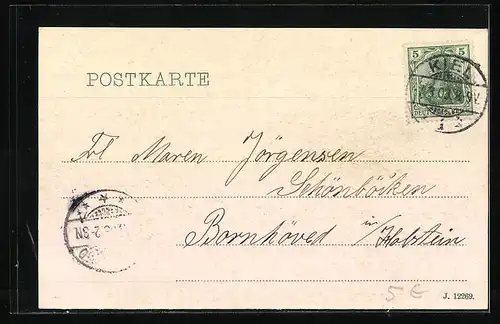 POSTKARTE
5 5
KIEL
Frl Maren Jörgensen
Schönböcken
Bornhöved in/Holstein
5 €
J. 12269.